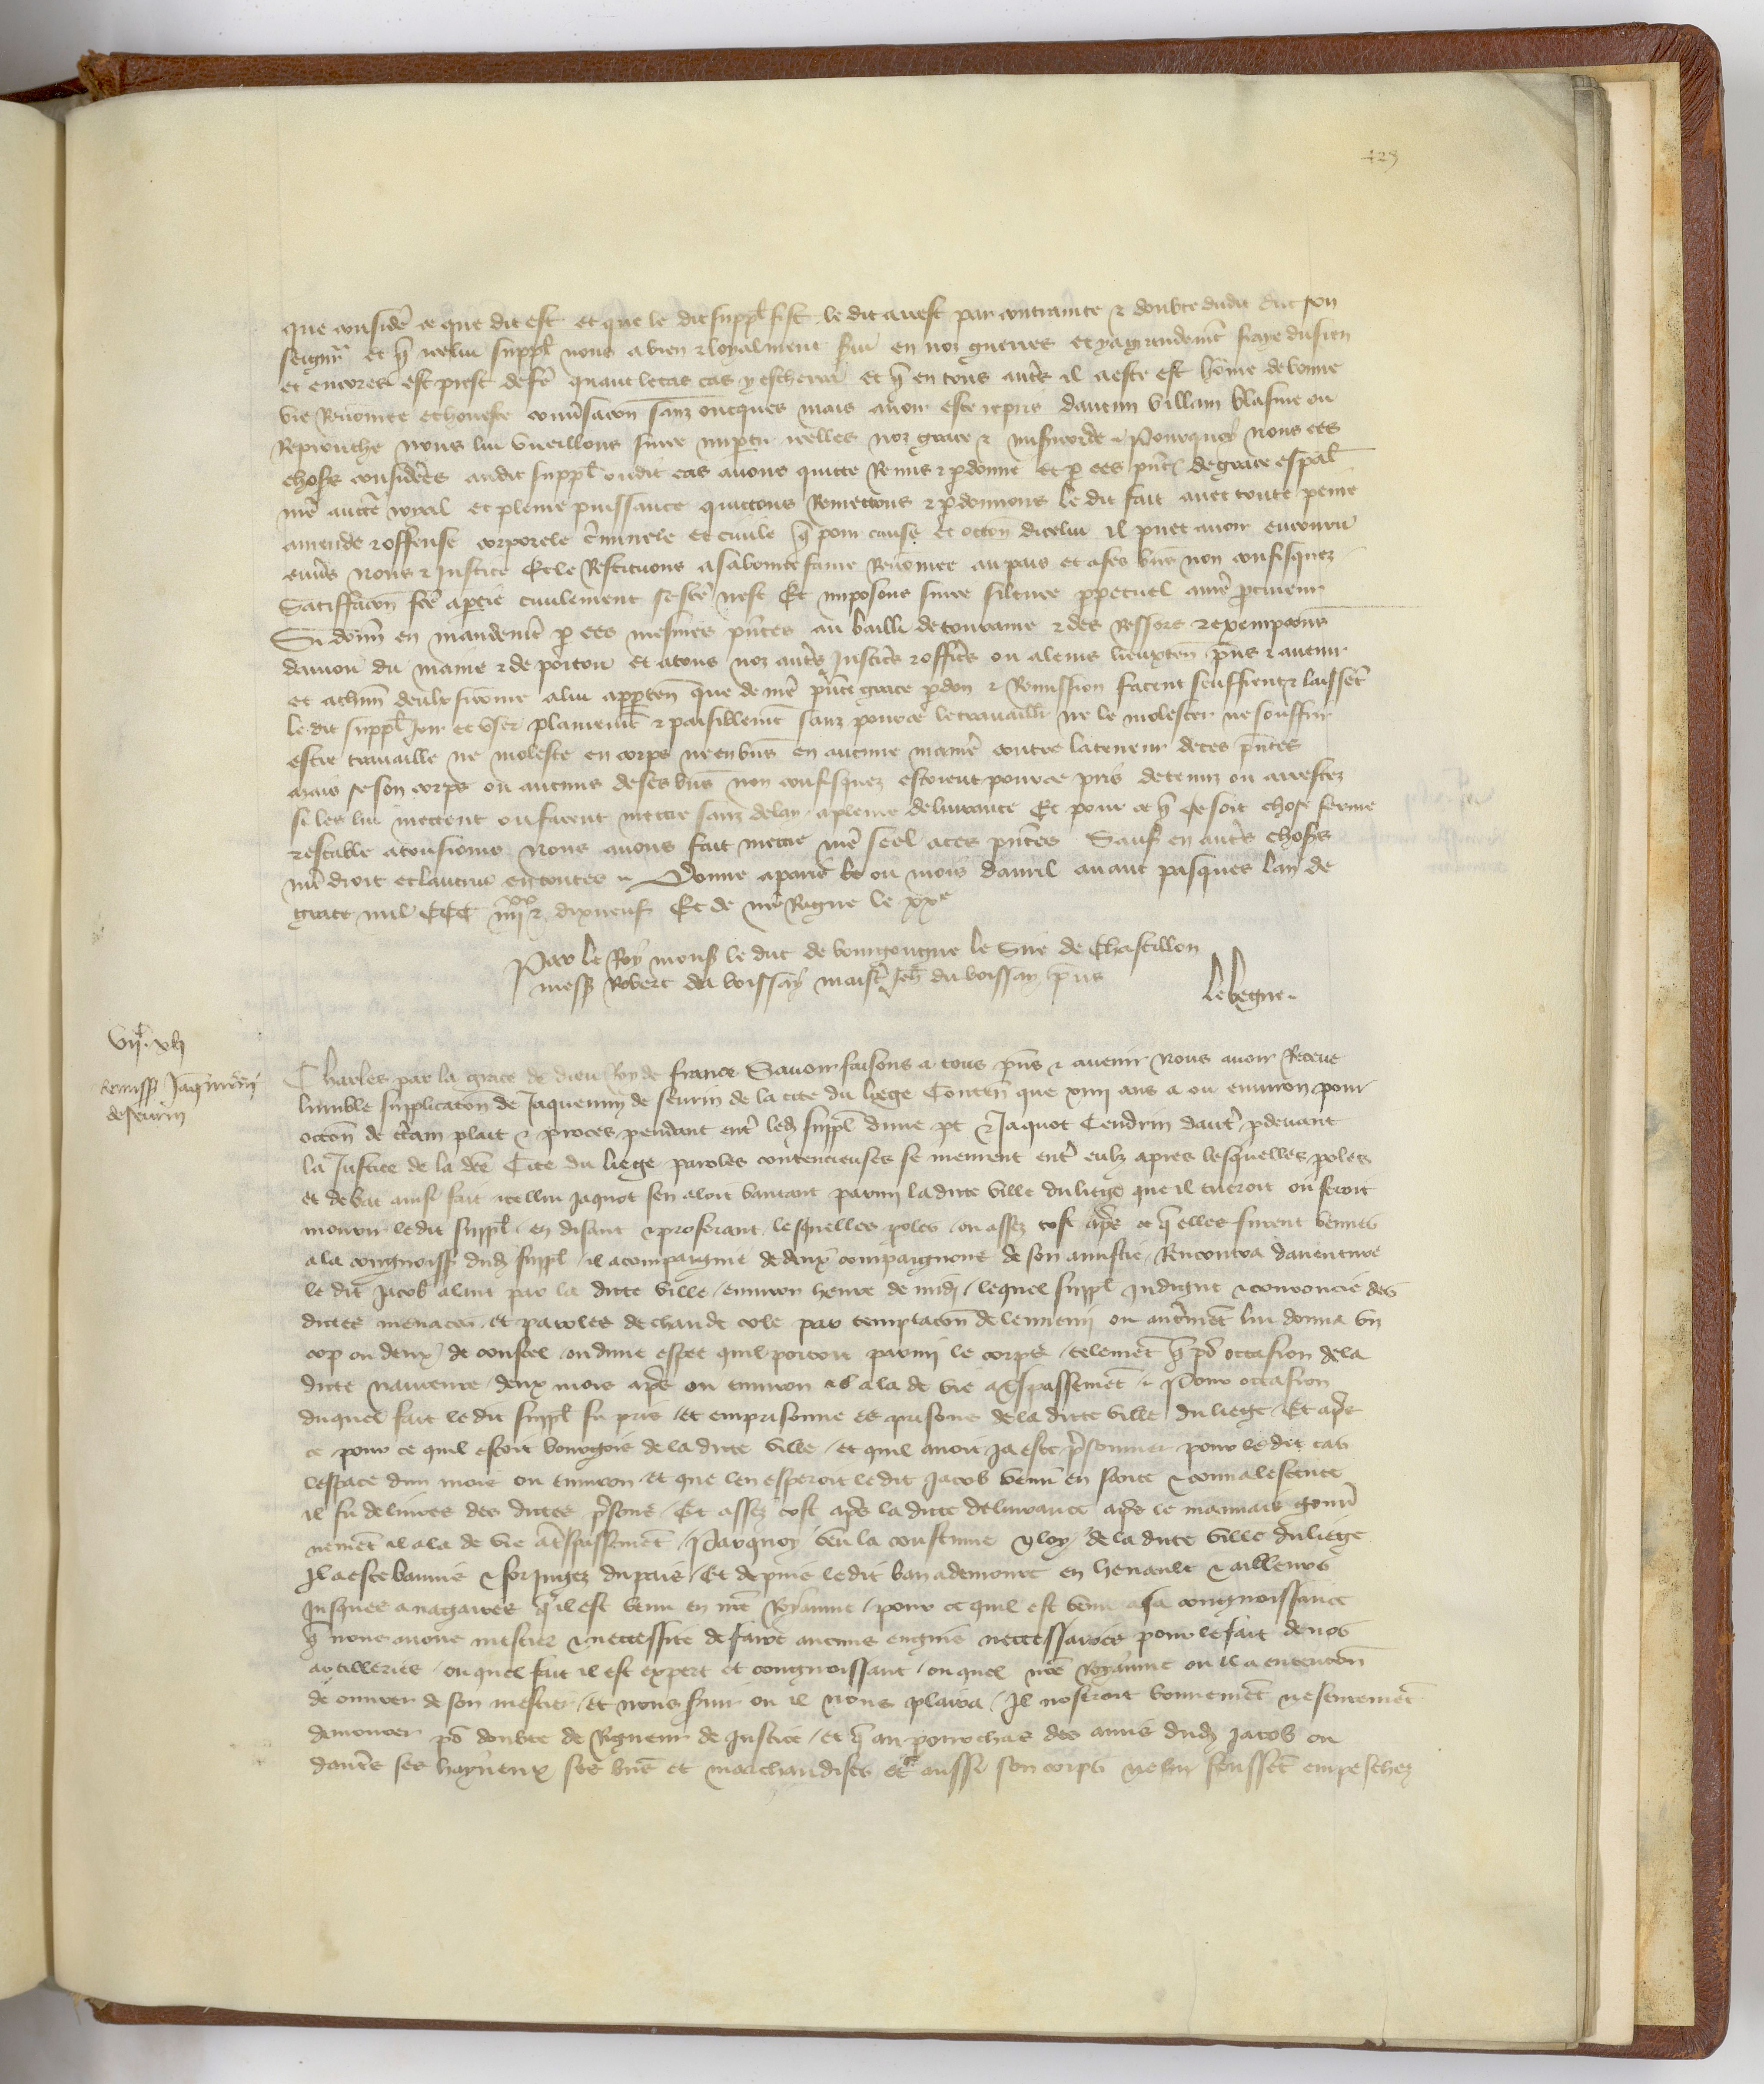 429
que consideré ce que dit est et que le dit suppl fist le dit arrest par contrainte & doubte dudit duc son
seignr et q icelui suppl nous a bien & loyalment servi en noz guerres et y a grandemt fraye du sien
et encores est prest de fe quant le cas y escherra et q en tous autres il a esté et est home de bonne
vie renomee et honneste conversacon sanz oncques mais avoir esté repris daucun villain blasme ou
reprouche nous lui vueillons sur ce impartir noz grace & misericorde Pourquoy nous ces
choses considerees audit suppl ou dit cas avons quicté remis & pdonné et p ces pntes de grace espal
nre auctté royal et pleine puissance quictons remettons & pdonnons le dit fait avec toute peine
amende & offense corporele criminele et civile q pour cause et occon dicelui il puet avoir encouru
envers nous & justice Et le restituons a sa bonne fame renomee au pais et a ses biens non confisquez
Satisfacon fte a partie civilement se fte nest Et imposons sur ce silence ppetuel a nre procureur
Si donn en mandemt p ces mesmes pntes au bailli de touraine & des ressors & exempcons
danjou du maine & de poitou et a tous noz autres justiciers & officiers ou a leurs lieuxten pns & avenir
et a chun deulx sicomme a lui appten que de nre pnte grace pdon & remission facent seuffrent & laissent
le dit suppl joir et user plainemt & paisiblemt sanz pour ce le travaill ne le molester ne souffrir
estre travaillé ne molesté en corps ne en biens en aucune maniere contre la teneur de ces pntes
mais se son corps ou aucuns de ses biens non confisquez estoient pour ce pris detenuz ou arrestez
si les lui mettent ou facent mettre sanz delay a pleine delivrance Et pour ce q ce soit chose ferme
& estable a tousiours nous avons fait mettre nre seel a ces pntes Sauf en autres choses
nre droit et lautrui en toutes Donné a paris ou mois davril avant pasques lan de
grace mil CCC iiiixx & dixneuf Et de nre Regne le xxe
Par le Roy mons le duc de bourgongne le Sire de Chastillon
mess Robert de boissay maistre Jeh du boissay pns
Lebegue
viic xli
Remiss Jaquemin
de seurin
Charles par la grace de dieu Roy de france Savoir faisons a tous pns & avenir Nous avoir Receue
lumble supplicaton de Jaquemin de seurin de la cite du liege Conten que xiiii ans a ou environ pour
occon de ctain plait & proces pendant entre led suppl dune pt & Jaquot Cendrin dautre pdevant
la Justice de la dte Cite du liege paroles contencieuses se meurent entre eulz apres lesquelles poles
et debat ainsi fait icellui Jaquot sen aloit vantant parmi la dicte ville du liege que il tueroit ou feroit
mourir le dit suppl en disant & proferant lesquelles poles ou assez tost apres ce q elles furent venues
a la congnoiss dud suppl il acompaigné de deux compaignons de son amistié Rencontra daventure
le dit Jacob alant par la dicte ville environ heure de midj lequel suppl indigné & couroucié des
dictes menaces et paroles de chaude cole par temptacon de lennemi ou autremt lui donna un
cop ou deux de coustel ou dune espee quil portoit parmi le corps telemet q po occasion de la
dicte navreure deux mois apres ou environ ala de vie a trespassement Pour occasion
duquel fait le dit suppl fu pris et emprisonné es prisons de la dicte ville du liege Et apres
ce pour ce quil estoit bourgois de la dicte ville et quil avoit ja esté prisonnier pour le dit cas
lespace dun mois ou environ et que len esperoit le dit Jacob venir en santé & convalescence
il fu delivrés des dictes prisons Et assez tost apres la dicte delivrance apres le mauvais gouver
nement il ala de vie a trespassement Parquoy veu la coustume & loy de la dicte ville du liege
Il a esté banniz & forjugez du pais Et depuis le dit ban a demouré en henault & ailleurs
jusques a nagaires quil est venu en nre Royaume pour ce quil est venu a sa congnoissance
q nous avons mestier & necessité de faire aucuns engins neccessaires pour le fait de nos
artilleries ou quel fait il est expert et congnoissant ou quel nre Royaume ou il a entencon
de ouvrer de son mestier et nous servir ou il nous plaira Il noseroit bonnement ne seurement
demourer po doubte de Rigueur de justice et q au pourchas des amis dud Jacob ou
dautres ses hayneux ses biens et marchandises et aussi son corps ne lui feussent empeschez